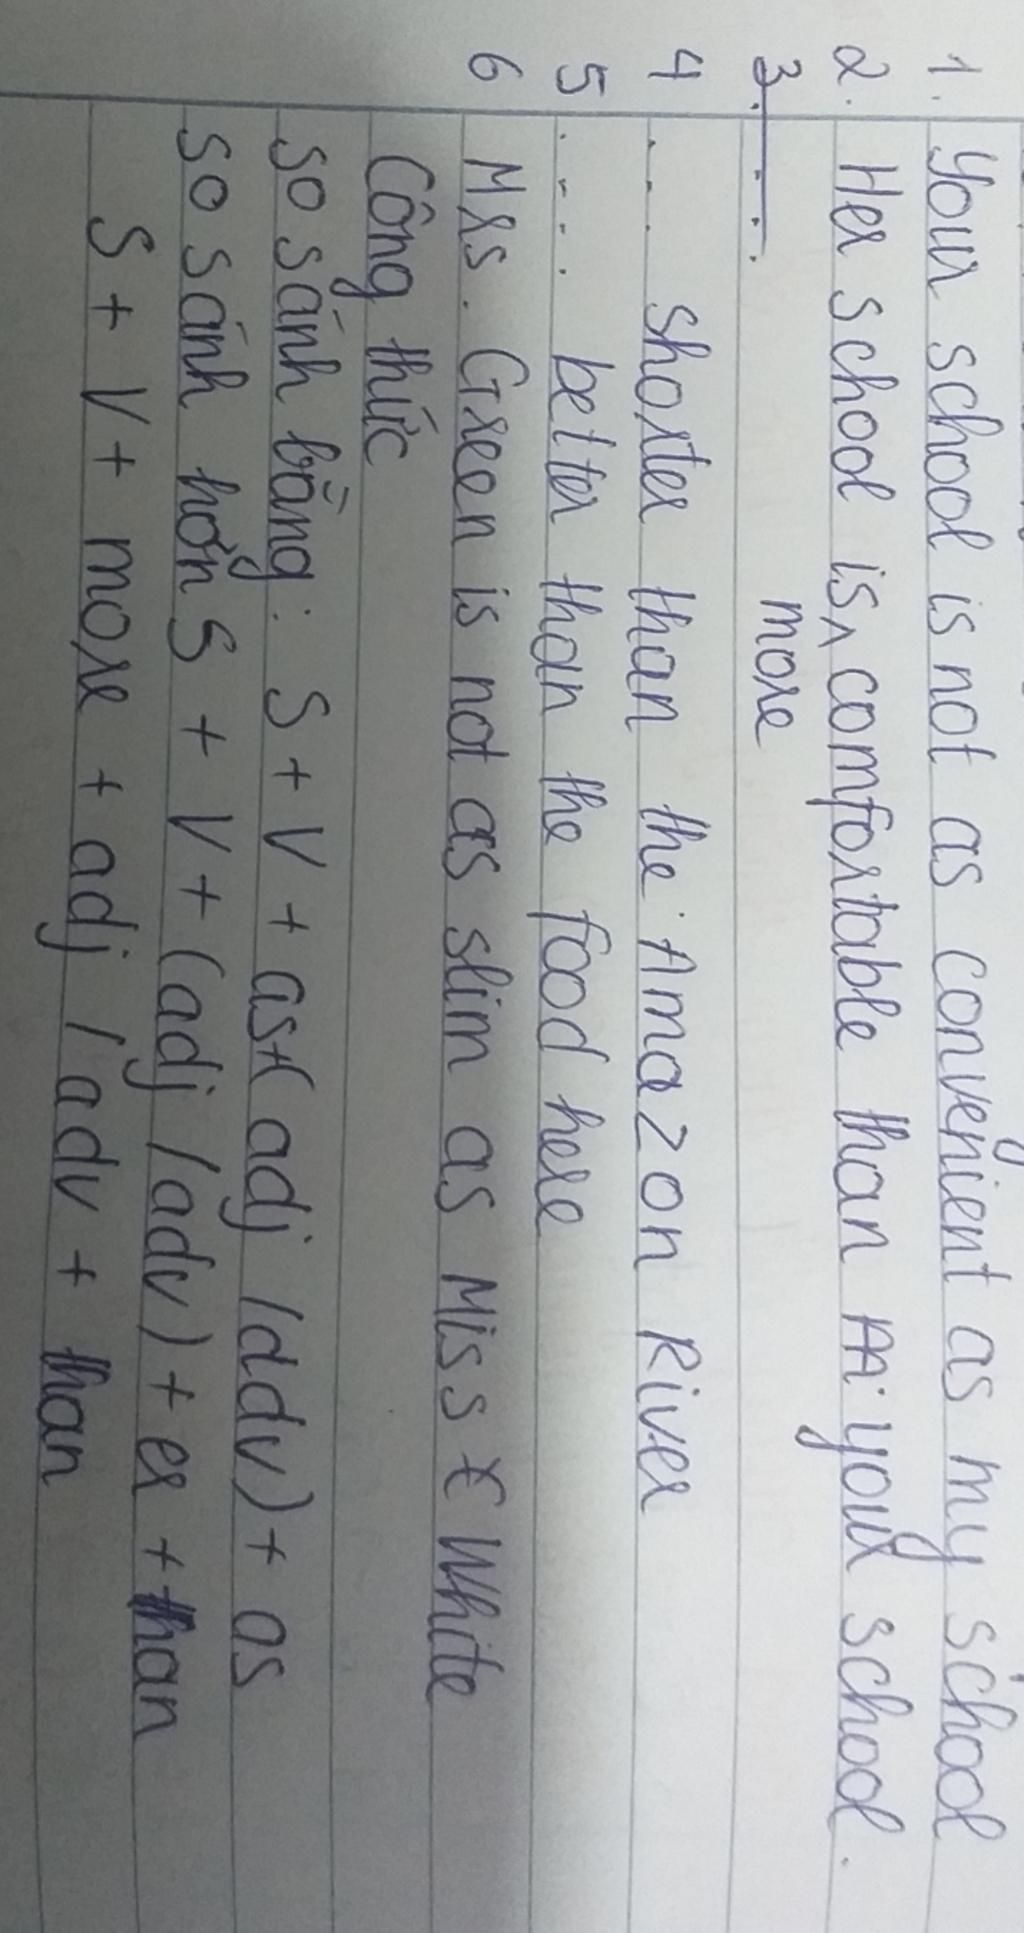 1. Your school is not as convenient as my school
2. Her school is ^ comfortable than your school.
more
3. ....
4 ... shorter than the Amazon River
5 .... better than the food here
6 Mrs. Green is not as slim as Miss White
Công thức
So sánh bằng: S + V + as + (adj / adv) + as
So sánh hơn S + V + (adj / adv) + er + than
S + V + more + adj / adv + than